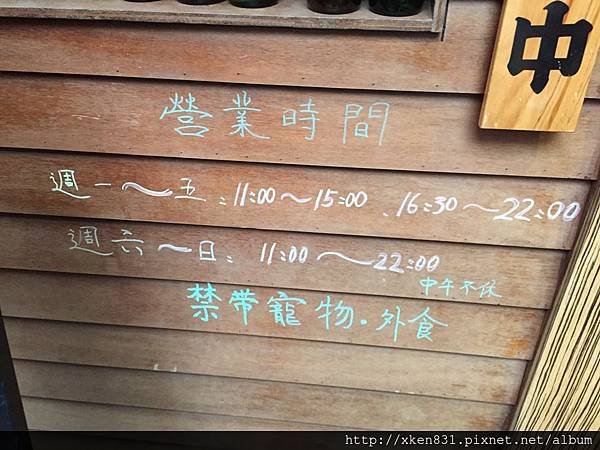 中
營業時間
週一～五:11:00～15:00、16:30～22:00
週六～日:11:00～22:00
中午不休
禁帶寵物.外食
http://xken831.pixnet.net/album